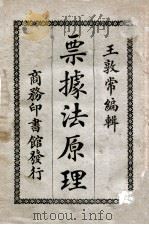 王敦常編輯
票據法原理
商務印書館發行
www.toutu.com